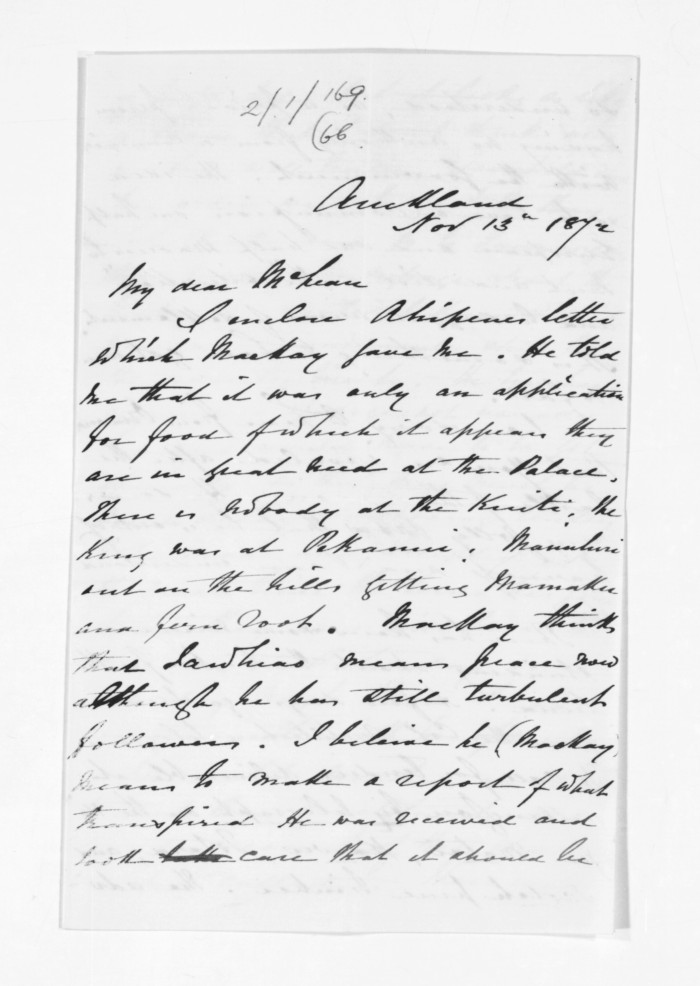 2/1/169.
(66
Auckland
Nov 13th 1872
My dear McLean
I enclose Ahipenes letter
which Mackay gave me. He told
me that it was only an application
for food of which it appears they
are in great need at the Palace.
There is nobody at the Kuiti. The
King was at Pekanui. Manuhiri
out on the hills getting Mamaku
and fern root. Mackay thinks
that Tawhiao means peace now
although he has still turbulent
followers. I believe he (Mackay)
means to make a report of what
transpired He was received and
took care that it should be